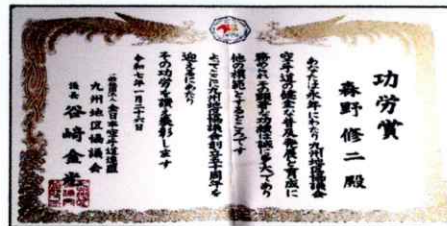 功労賞
森野修二殿
あなたは永年にわたり九州地区協議会
空手道の健全な普及発展と育成に
務められその顕著な功績は誠に多大であり
他の模範とするところです
よってここに九州地区協議会創立五十周年を
迎えるにあたり
その功労を讃え表彰します
令和七年一月二十六日
全日本空手道連盟
九州地区協議会
議長 谷﨑金光